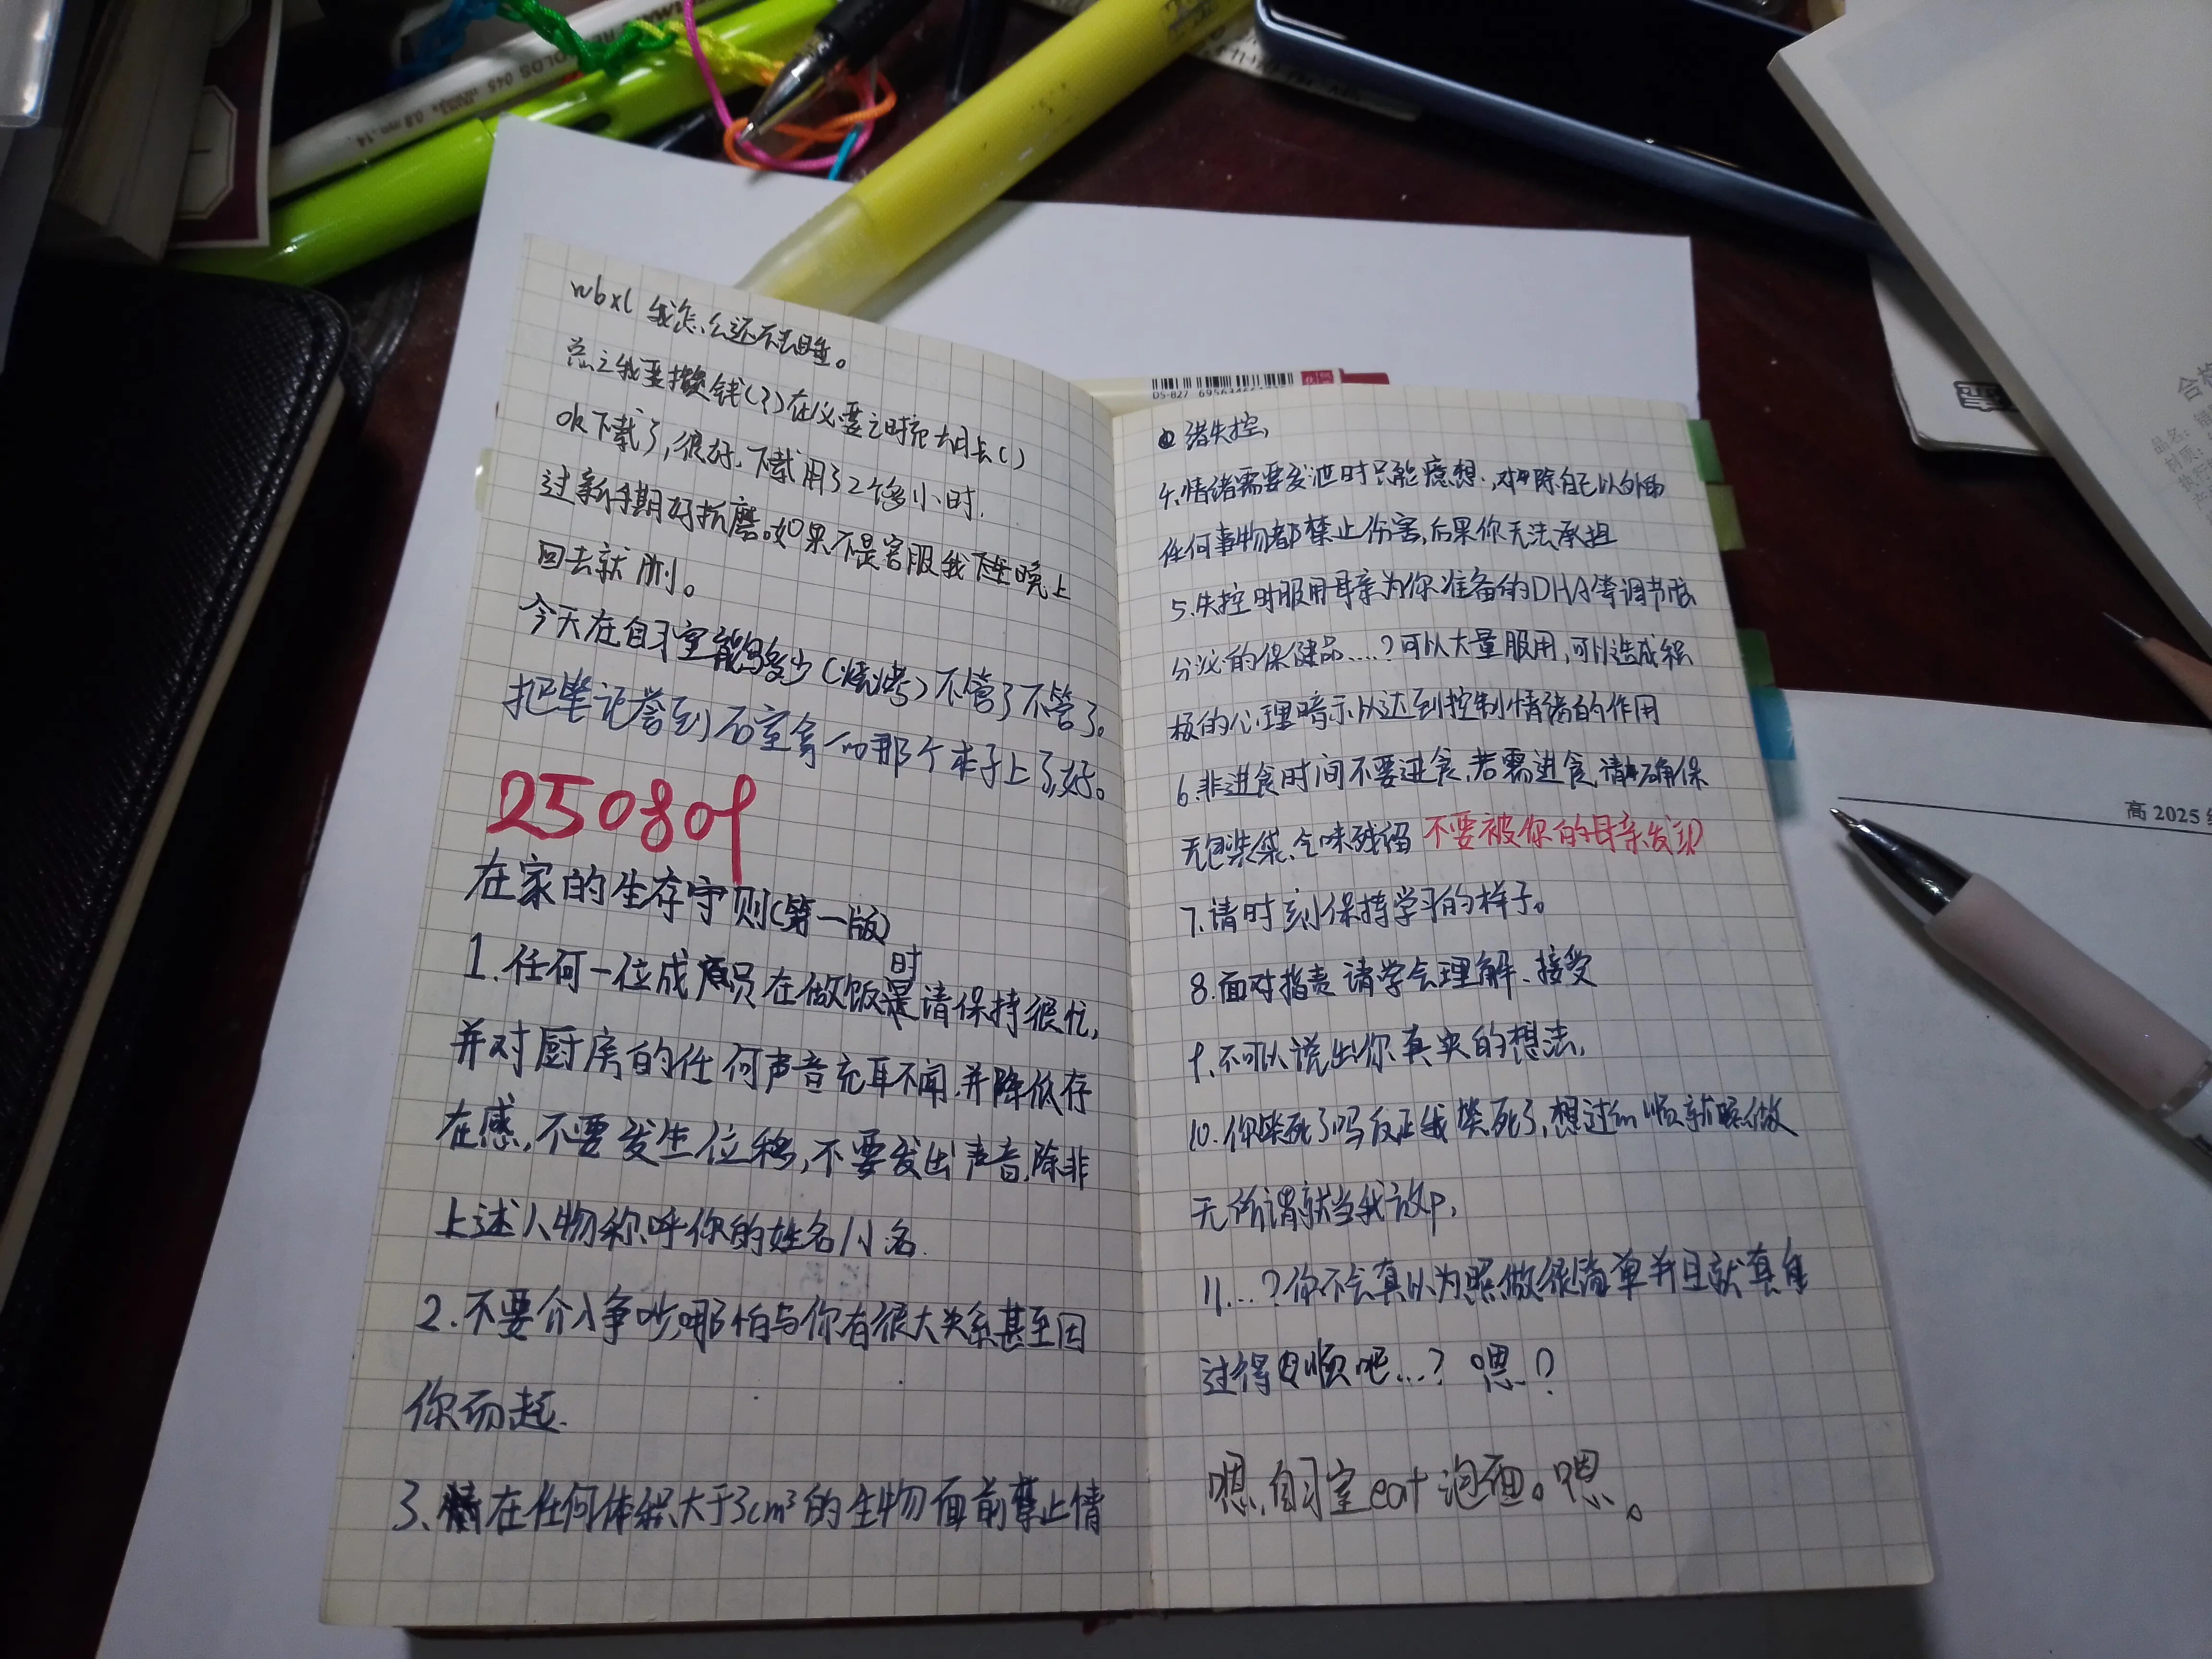 COLOS 045 0.8mm.14.
wbxl 我怎么还不去睡。
总之我要攒钱(?)在必要之时充大月卡()
ok下载了,很好.下载用了2个多小时.
过新手期好折磨。如果不是客服我下至晚上
回去就删。
今天在自习室能写多少(烧烤)不管了不管了。
把笔记誊到石室拿的那个本子上了,好。
250809
在家的生存守则(第一版)
1.任何一位成员在做饭时请保持很忙,
并对厨房的任何声音充耳不闻.并降低存
在感,不要发生位移,不要发出声音.除非
上述人物称呼你的姓名/小名.
2.不要介入争吵,哪怕与你有很大关系甚至因
你而起.
3、在任何体积大于3cm³的生物面前禁止情
DS-827 6956
绪失控,
4、情绪需要发泄时只能臆想.,对除自己以外的
任何事物都禁止伤害,后果你无法承担
5.失控时服用母亲为你准备的DHA等调节版
分泌的保健品....?可以大量服用,可以造成积
极的心理暗示以达到控制情绪的作用
6.非进食时间不要进食.若需进食,请确保
无包装袋、气味残留 不要被你的母亲发现
7.请时刻保持学习的样子。
8.面对指责 请学会理解、接受
9、不可以说出你真实的想法,
10.你笑死了吗反正我笑死了,想过的顺就照做
无所谓就当我放P.
11....?你不会真以为照做很简单并且就真能
过得很顺吧...? 嗯.?
嗯.自习室eat泡面。嗯。
高 2025 级
合格
品名:
材质:
执行